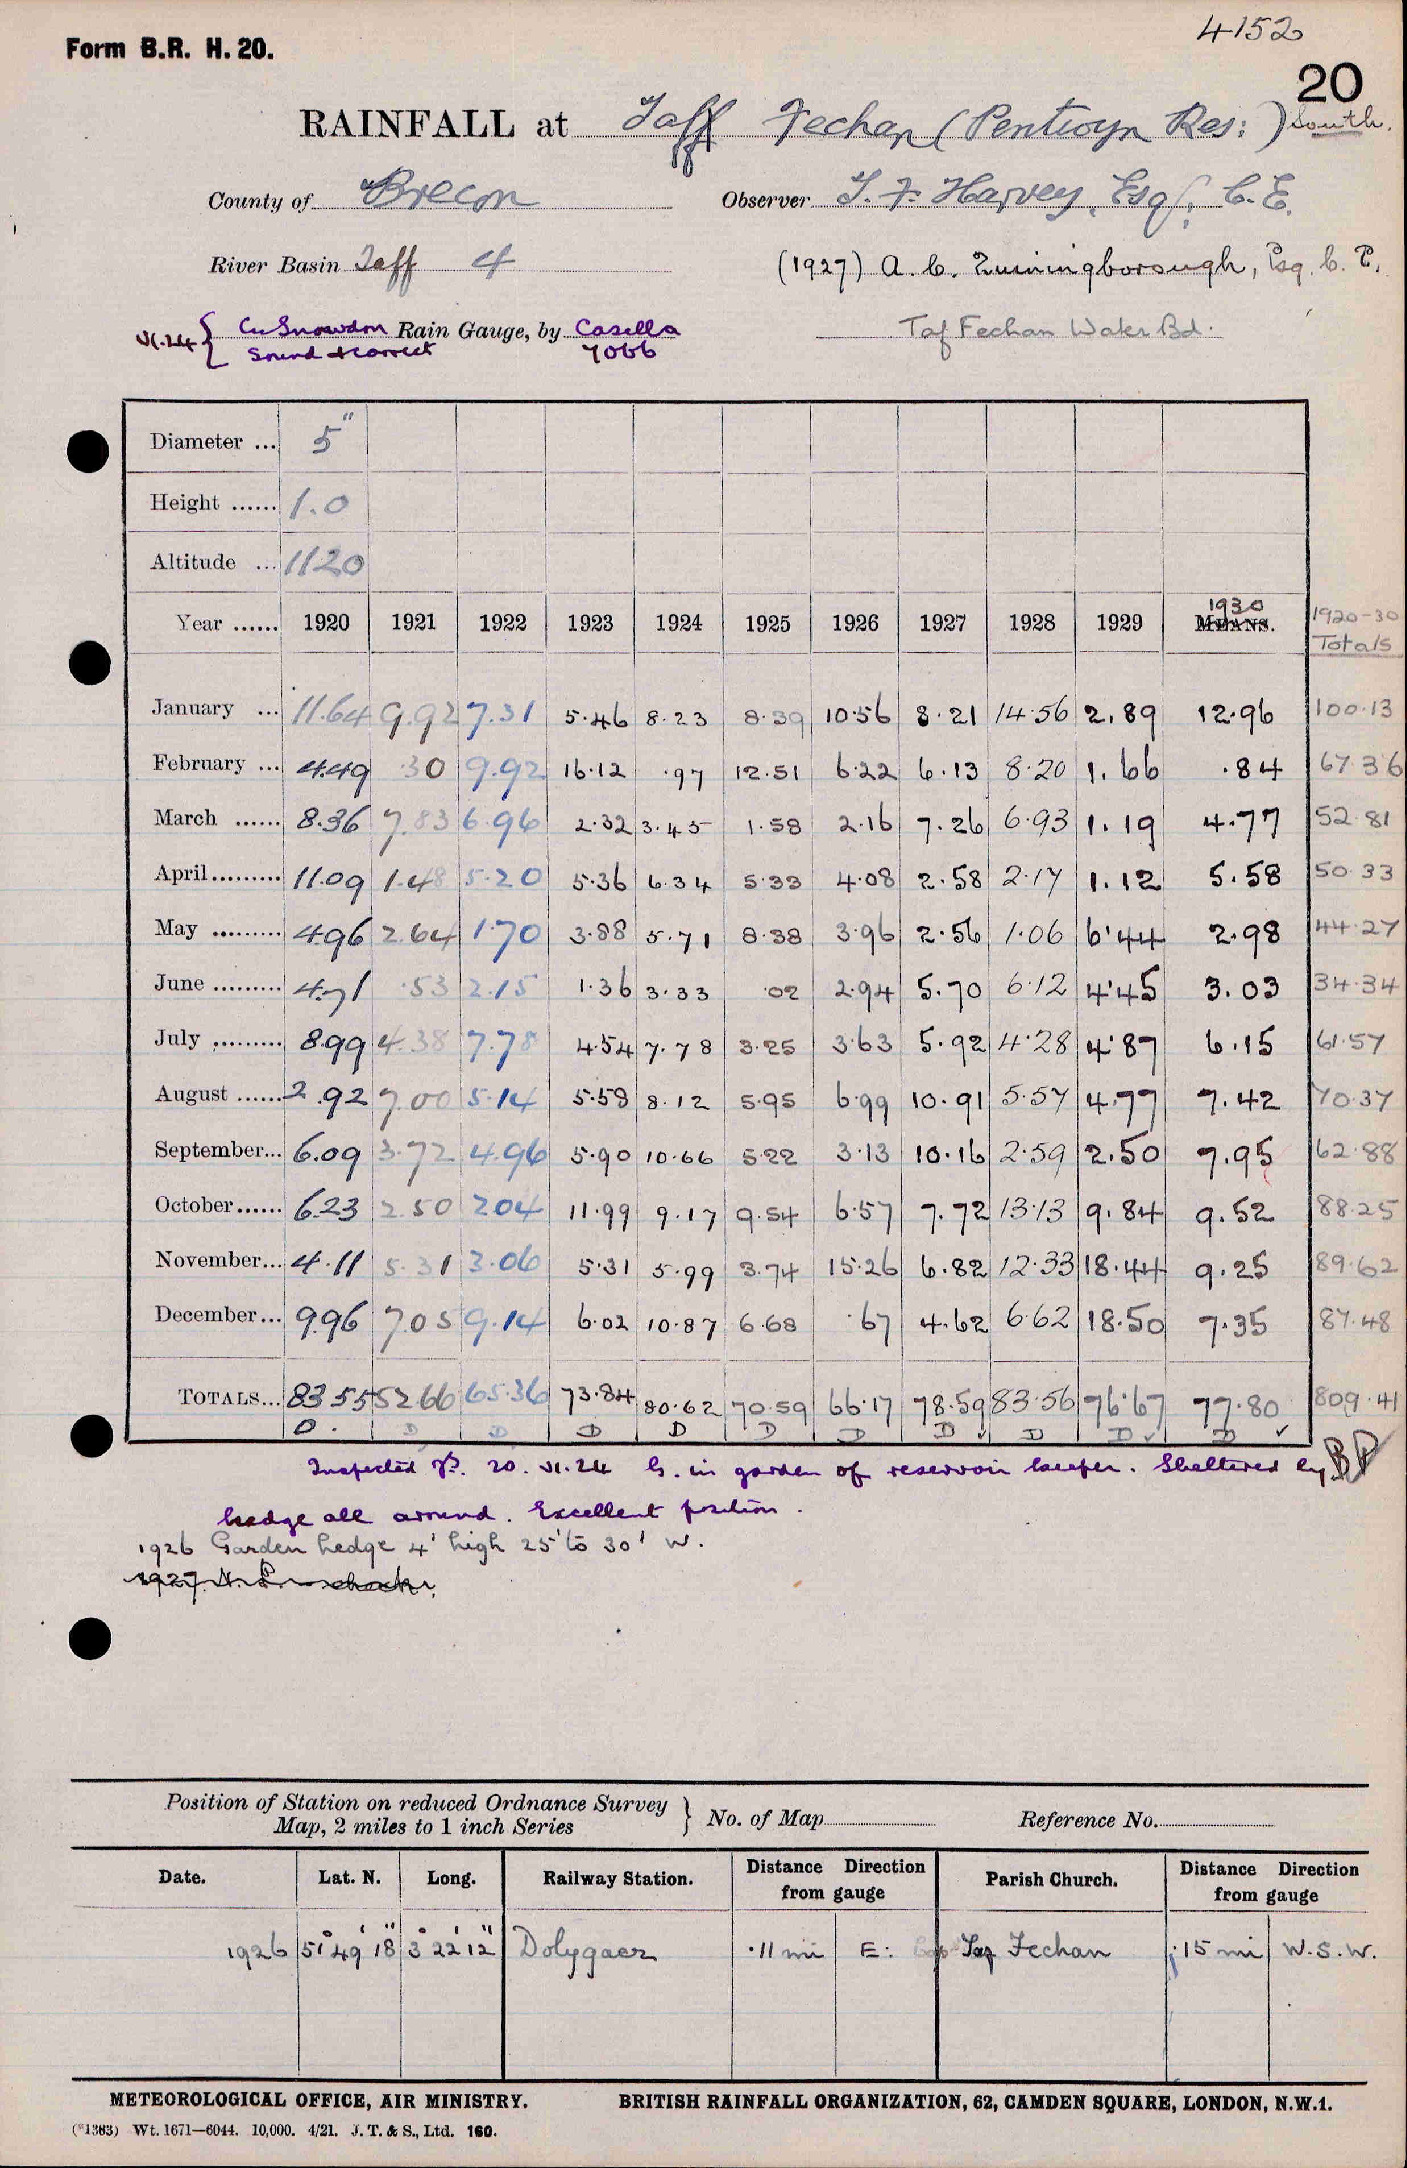 4152
Form B.R. H. 20.
20
RAINFALL at Taff Fechan (Pentwyn Res:) South.
County of Brecon Observer T. F. Harvey, Esq., C.E.
River Basin Taff 4 (1927) A. C. Esq. C. E.
VI.24 { Cu Snowdon Rain Gauge, by Casella Taf Fechan Water Bd.
Sound & correct 7066
Diameter ... 5"
Height ...... 1.0
Altitude ... 1120
Year ...... 1920 1921 1922 1923 1924 1925 1926 1927 1928 1929 1930 MEANS. 1920-30 Totals
January ... 11.64 9.92 7.31 5.46 8.23 8.39 10.56 8.21 14.56 2.89 12.96 100.13
February ... 4.49 .30 9.92 16.12 .97 12.51 6.22 6.13 8.20 1.66 .84 67.36
March ...... 8.36 7.83 6.96 2.32 3.45 1.58 2.16 7.26 6.93 1.19 4.77 52.81
April......... 11.09 1.48 5.20 5.36 6.34 5.33 4.08 2.58 2.17 1.12 5.58 50.33
May ......... 4.96 2.64 1.70 3.88 5.71 8.38 3.96 2.56 1.06 6.44 2.98 44.27
June ......... 4.71 .53 2.15 1.36 3.33 .02 2.94 5.70 6.12 4.45 3.03 34.34
July ......... 8.99 4.38 7.78 4.54 7.78 3.25 3.63 5.92 4.28 4.87 6.15 61.57
August ...... 2.92 7.00 5.14 5.58 8.12 5.95 6.99 10.91 5.57 4.77 7.42 70.37
September... 6.09 3.72 4.96 5.90 10.66 5.22 3.13 10.16 2.59 2.50 7.95 62.88
October...... 6.23 2.50 2.04 11.99 9.17 9.54 6.57 7.72 13.13 9.84 9.52 88.25
November... 4.11 5.31 3.06 5.31 5.99 3.74 15.26 6.82 12.33 18.44 9.25 89.62
December... 9.96 7.05 9.14 6.02 10.87 6.68 .67 4.62 6.62 18.50 7.35 87.48
TOTALS... 83.55 52.66 65.36 73.84 80.62 70.59 66.17 78.59 83.56 76.67 77.80 809.41
D. D D D D D D D ✓ D D ✓ D ✓
Inspected 20.VI.24 G. in garden of reservoir keeper. Sheltered by BP
hedge all around. Excellent position.
1926 Garden hedge 4' high 25' to 30' W.
1927
Position of Station on reduced Ordnance Survey
Map, 2 miles to 1 inch Series } No. of Map Reference No.
Date. Lat. N. Long. Railway Station. Distance Direction from gauge Parish Church. Distance Direction from gauge
1926 51° 49' 18" 3° 22' 12" Dolygaer .11 mi E: Taf Fechan .15 mi W.S.W.
METEOROLOGICAL OFFICE, AIR MINISTRY. BRITISH RAINFALL ORGANIZATION, 62, CAMDEN SQUARE, LONDON, N.W.1.
(*1383) Wt. 1671—6044. 10,000. 4/21. J. T. & S., Ltd. 160.